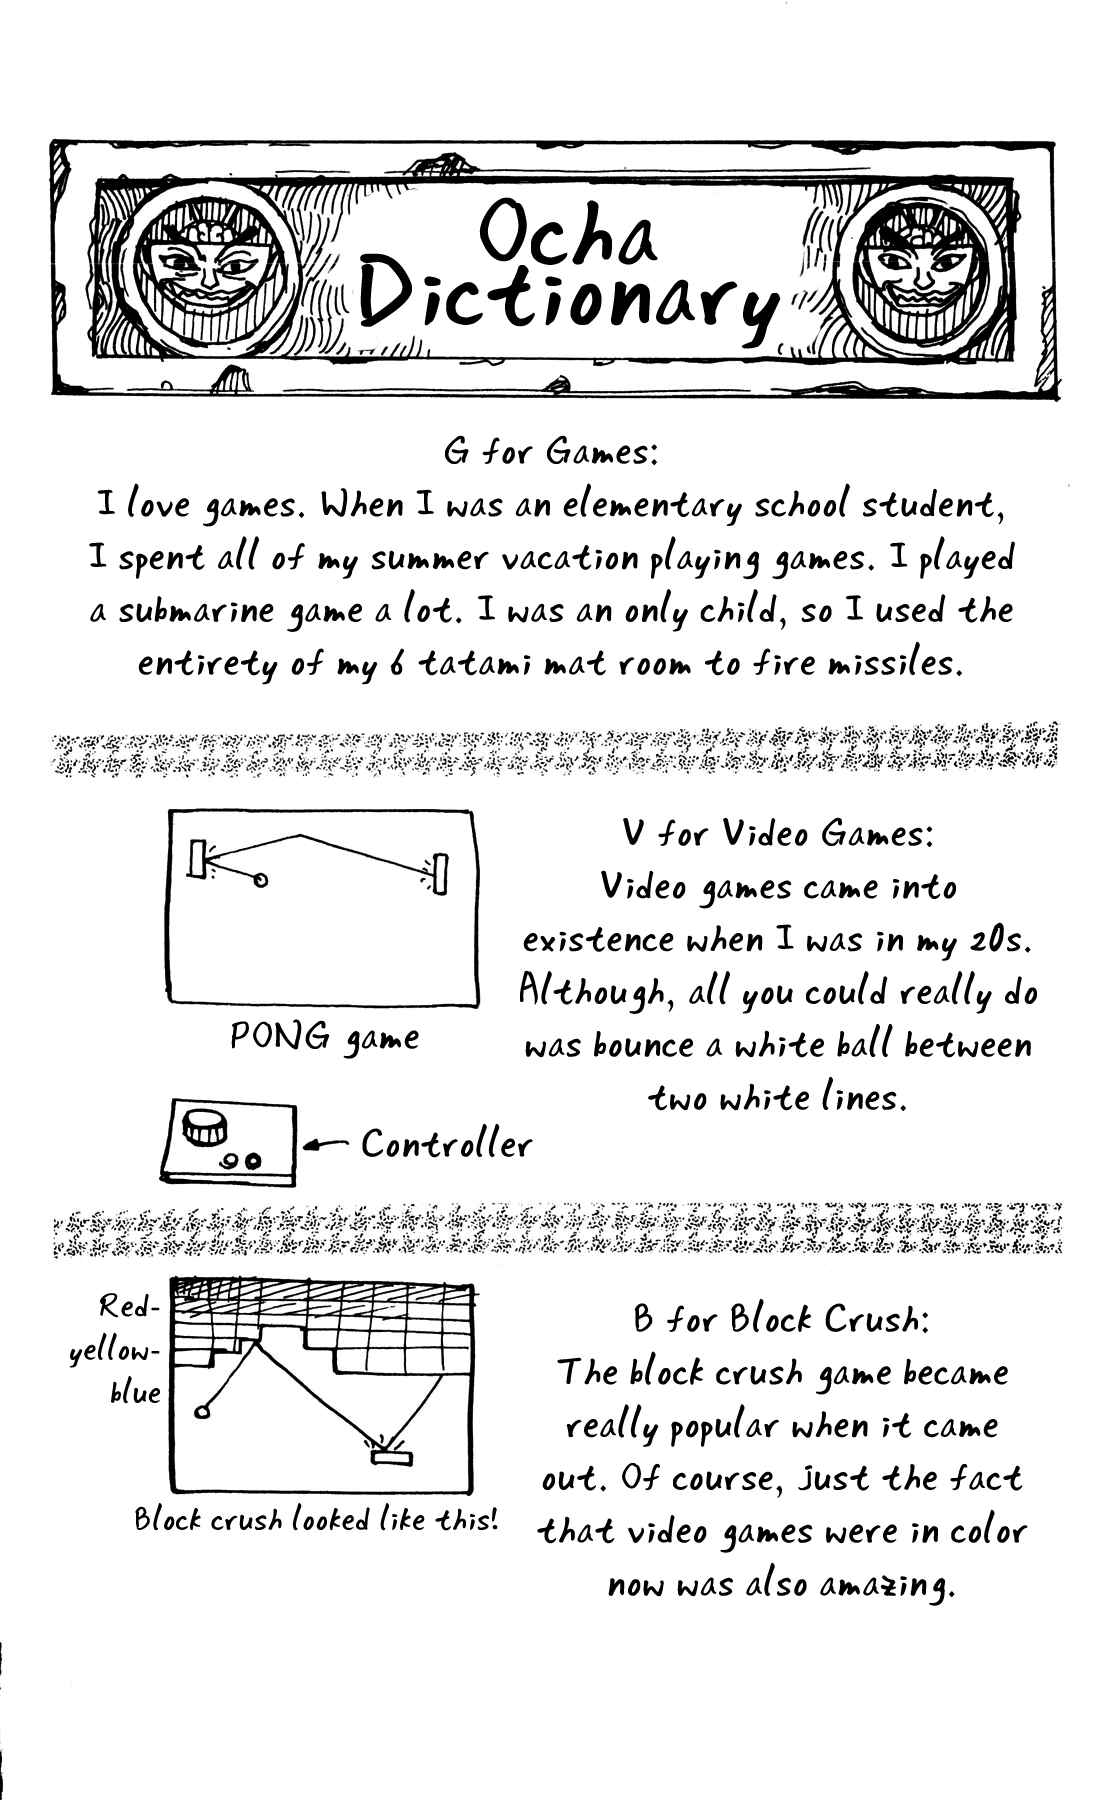 Ocha
Dictionary
G for Games:
I love games. When I was an elementary school student,
I spent all of my summer vacation playing games. I played
a submarine game a lot. I was an only child, so I used the
entirety of my 6 tatami mat room to fire missiles.
V for Video Games:
Video games came into
existence when I was in my 20s.
Although, all you could really do
was bounce a white ball between
two white lines.
PONG game
Controller
Red-
yellow-
blue
Block crush looked like this!
B for Block Crush:
The block crush game became
really popular when it came
out. Of course, just the fact
that video games were in color
now was also amazing.